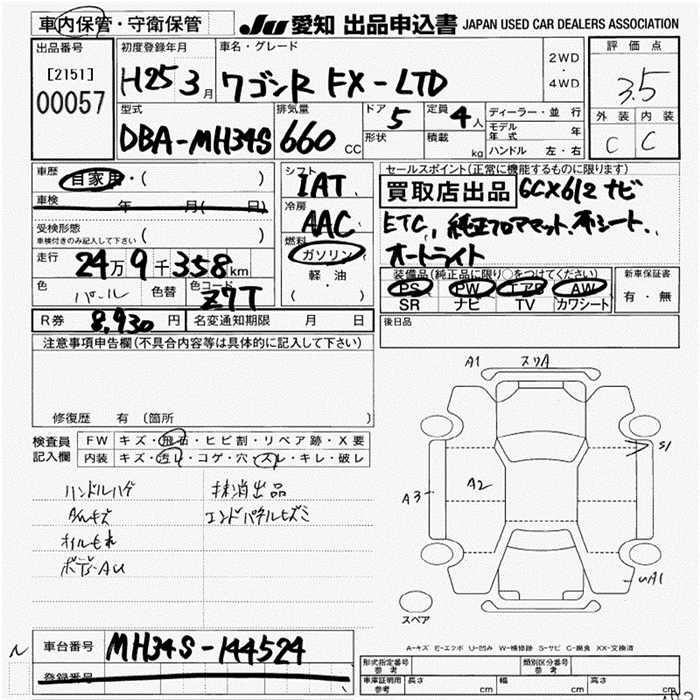 車内保管・守衛保管
JU 愛知 出品申込書 JAPAN USED CAR DEALERS ASSOCIATION
出品番号
[2151]
00057
初度登録年月
H25 3月
車名・グレード
ワゴンR FX-LTD
2WD
・
4WD
評価点
3.5
外装 内装
C C
型式
DBA-MH34S
排気量
660 CC
ドア 5
形状
定員 4人
積載 kg
ディーラー・並行
モデル年式 年
ハンドル 左・右
車歴
自家用・( )
車検 年 月( 日)
受検形態
車検付きのみ記入して下さい ( )
走行
24万9千358km
色 パール 色替 色コード Z7T
シフト
IAT
冷房
AAC
燃料
ガソリン
軽・油
( )
セールスポイント(正常に機能するものに限ります)
買取店出品 GCX612 ナビ
ETC、純正フロアマット、布シート、
オートライト
装備品(純正品に限り○をつけてください)
PS PW エアB AW
SR ナビ TV カワシート
新車保証書
有・無
R券 8,930円 名変通知期限 月 日
後日品
注意事項申告欄(不具合内容等は具体的に記入して下さい)
修復歴 有 (箇所 )
検査員
記入欄
FW キズ・飛石・ヒビ割・リペア跡・X要
内装 キズ・汚レ・コゲ・穴・スレ・キレ・破レ
ハンドルハゲ 抹消出品
AWキズ エンドパネルヒズミ
オイルもれ
ボデーAU
A1 スリA
S1
A3
A2
UA1
スペア
A-キズ E-エクボ U-凹み W-補修跡 S-サビ C-腐食 XX-交換済
車台番号 MH34S-144524
登録番号
形式指定番号 参考
類別区分番号 参考
車庫証明用 参考 長さ cm 幅 cm 高さ cm